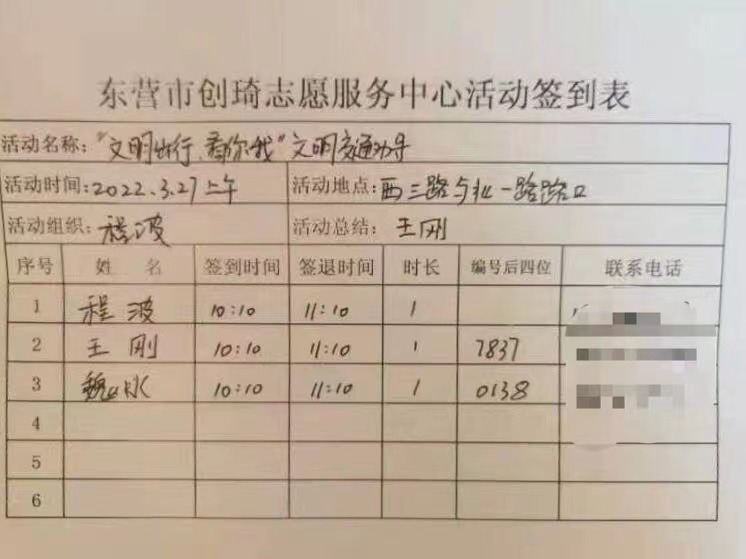 东营市创琦志愿服务中心活动签到表
活动名称："文明出行、看你我"文明交通劝导
活动时间：2022.3.27上午 活动地点：西三路与北一路路口
活动组织：程波 活动总结：王刚
序号 姓名 签到时间 签退时间 时长 编号后四位 联系电话
1 程波 10:10 11:10 1
2 王刚 10:10 11:10 1 7837
3 魏 10:10 11:10 1 0138
4
5
6